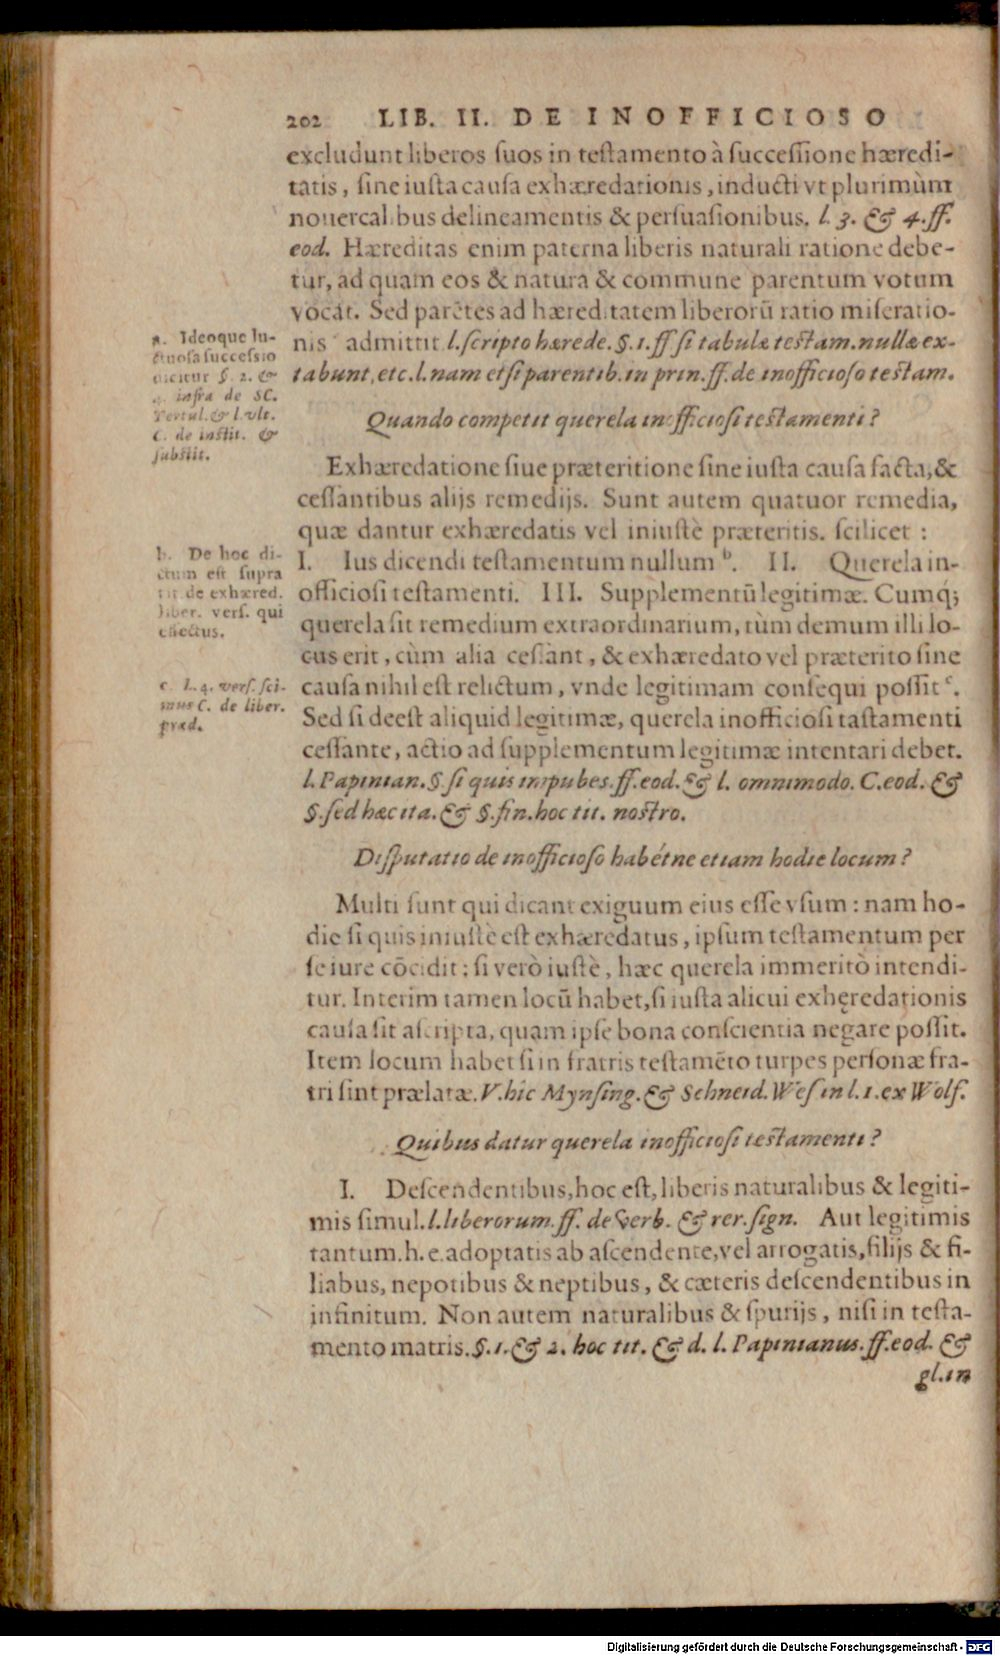 202 LIB. II. DE INOFFICIOSO
excludunt liberos suos in testamento à successione hæredi-
tatis, sine iusta causa exhæredationis, inducti vt plurimùm
nouercalibus delineamentis & persuasionibus. l. 3. & 4. ff.
eod. Hæreditas enim paterna liberis naturali ratione debe-
tur, ad quam eos & natura & commune parentum votum
vocat. Sed parẽtes ad hæreditatem liberorũ ratio miseratio-
nis admittit l. scripto hærede. §. 1. ff si tabulæ testam. nullæ ex-
tabunt, etc. l. nam etsi parentib. in prin. ff. de inofficioso testam.
Quando competit querela inofficiosi testamenti?
Exhæredatione siue præteritione sine iusta causa facta, &
cessantibus alijs remedijs. Sunt autem quatuor remedia,
quæ dantur exhæredatis vel iniustè præteritis. scilicet :
I. Ius dicendi testamentum nullum b. II. Querela in-
officiosi testamenti. III. Supplementũ legitimæ. Cumq́;
querela sit remedium extraordinarium, tùm demum illi lo-
cus erit, cùm alia cessant, & exhæredato vel præterito sine
causa nihil est relictum, vnde legitimam consequi possit c.
Sed si deest aliquid legitimæ, querela inofficiosi tastamenti
cessante, actio ad supplementum legitimæ intentari debet.
l. Papinian. §. si quis impubes. ff. eod. & l. omnimodo. C. eod. &
§. sed hæc ita. & §. fin. hoc tit. nostro.
Disputatio de inofficioso habétne etiam hodie locum?
Multi sunt qui dicant exiguum eius esse vsum : nam ho-
die si quis iniustè est exhæredatus, ipsum testamentum per
se iure cõcidit; si verò iustè, hæc querela immeritò intendi-
tur. Interim tamen locũ habet, si iusta alicui exhęredationis
causa sit ascripta, quam ipse bona conscientia negare possit.
Item locum habet si in fratris testamẽto turpes personæ fra-
tri sint prælatæ. V. hic Mynsing. & Schneid. Wes in l. 1. ex Wolf.
Quibus datur querela inofficiosi testamenti?
I. Descendentibus, hoc est, liberis naturalibus & legiti-
mis simul. l. liberorum. ff. de verb. & rer. sign. Aut legitimis
tantum. h. e. adoptatis ab ascendente, vel arrogatis, filijs & fi-
liabus, nepotibus & neptibus, & cæteris descendentibus in
infinitum. Non autem naturalibus & spurijs, nisi in testa-
mento matris. §. 1. & 2. hoc tit. & d. l. Papinianus. ff. eod. &
gl. in
a. Ideoque lu-
ctuosa successio
dicitur §. 2. &
infra de SC.
Tertul. & l. vlt.
C. de instit. &
substit.
b. De hoc di-
ctum est supra
tit. de exhæred.
liber. vers. qui
effectus.
c. L. 4. vers. sci-
mus C. de liber.
præd.
Digitalisierung gefördert durch die Deutsche Forschungsgemeinschaft - DFG